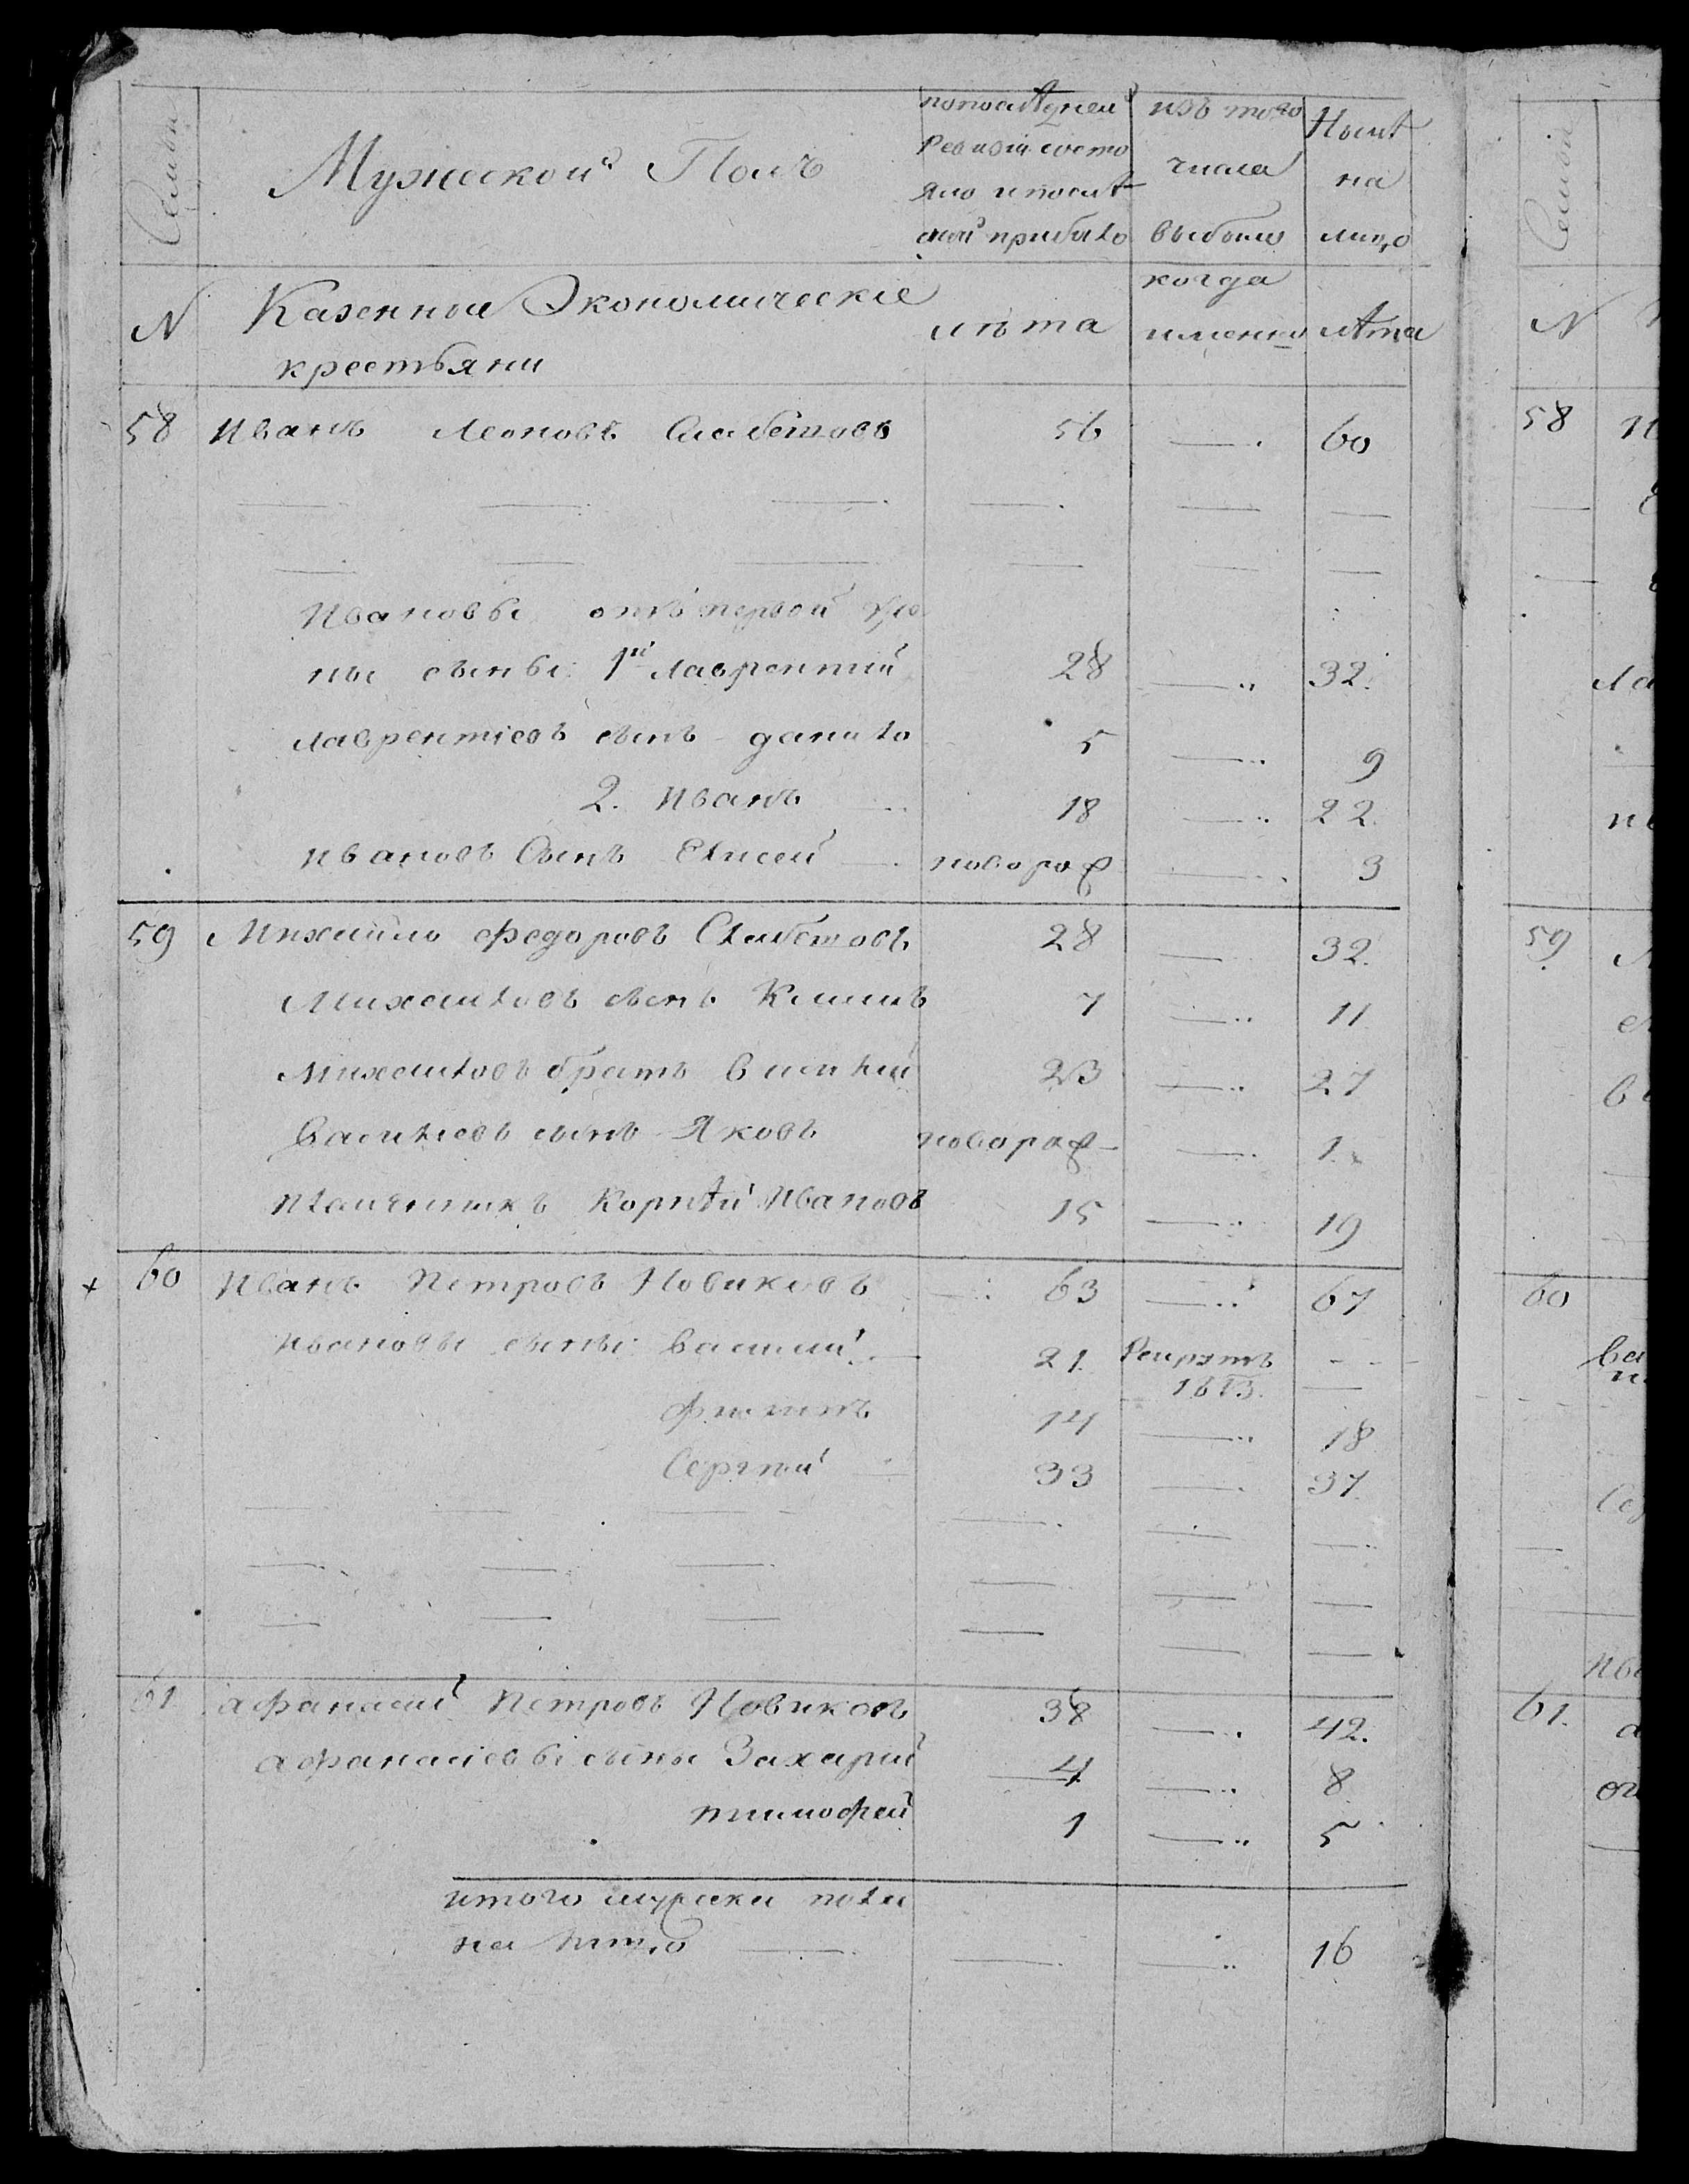 Семьи
Мужеской Полъ
попослѣдней
Ревизіи состо
яло и послѣ
оной прибыло
изъ того
числа
выбыло
Нынѣ
на
лицо
N
Казенныи Экономическіе
крестьяни
лѣта
когда
именно
лѣта
58 Иванъ Леоновъ 56 — 60
Ивановы отъ первой же
ны сыны: 1й Лаврентий 28 — 32.
Лаврентіевъ сынъ Данило 5 — 9
2. Иванъ 18 — 22.
Ивановъ Сынъ Елисей новорож — 3
59 Михайло Федоровъ 28 — 32.
Михайловъ сынъ Климъ 7 — 11
Михайловъ братъ Василий 23 — 27
Васильевъ сынъ Яковъ новорож — 1.
племянникъ Корнѣй Ивановъ 15 — 19
+ 60 Иванъ Петровъ Новиковъ 63 — 67
Ивановы сыны: Василий 21. Рекрутъ
1813.
Филипъ 14 — 18
Сергѣй 33 — 37.
61 Афанасий Петровъ Новиковъ 38 — 42.
Афанасіевы сыны Захарий 4 — 8
Тимофей 1 — 5
итого мужска пола
на лицо — — — 16
Семьи
N
58
59
60
61.